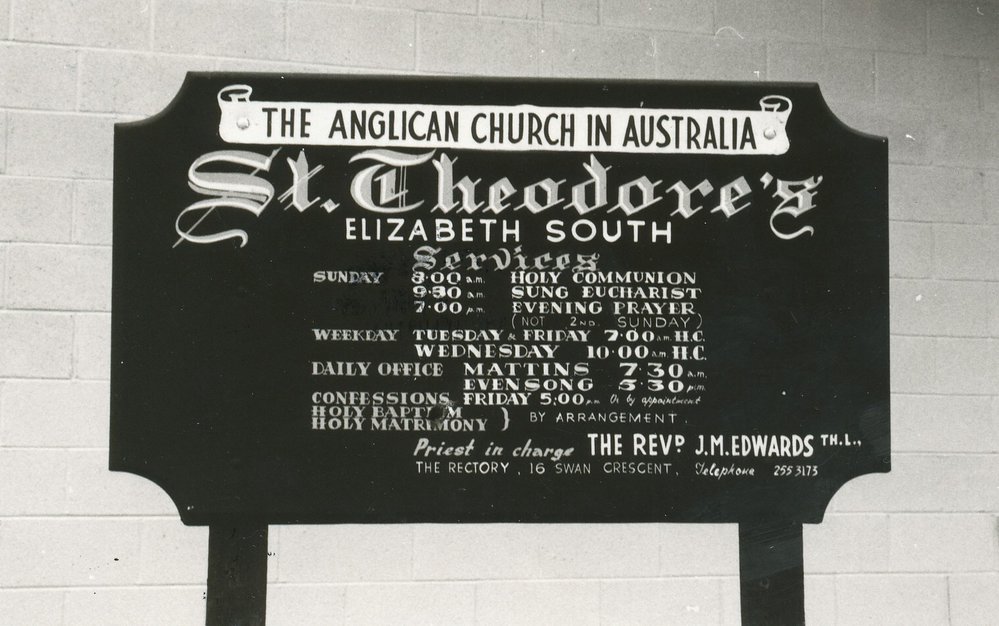 THE ANGLICAN CHURCH IN AUSTRALIA
St. Theodore's
ELIZABETH SOUTH
Services
SUNDAY 8:00 a.m. HOLY COMMUNION
9:30 a.m. SUNG EUCHARIST
7:00 p.m. EVENING PRAYER
(NOT 2ND. SUNDAY)
WEEKDAY TUESDAY & FRIDAY 7:00 a.m. H.C.
WEDNESDAY 10:00 a.m. H.C.
DAILY OFFICE MATTINS 7:30 a.m.
EVENSONG 5:30 p.m.
CONFESSIONS FRIDAY 5:00 p.m. Or by appointment
HOLY BAPTISM
HOLY MATRIMONY } BY ARRANGEMENT.
Priest in charge THE REVD J.M.EDWARDS TH.L.,
THE RECTORY, 16 SWAN CRESCENT. Telephone 255 3173